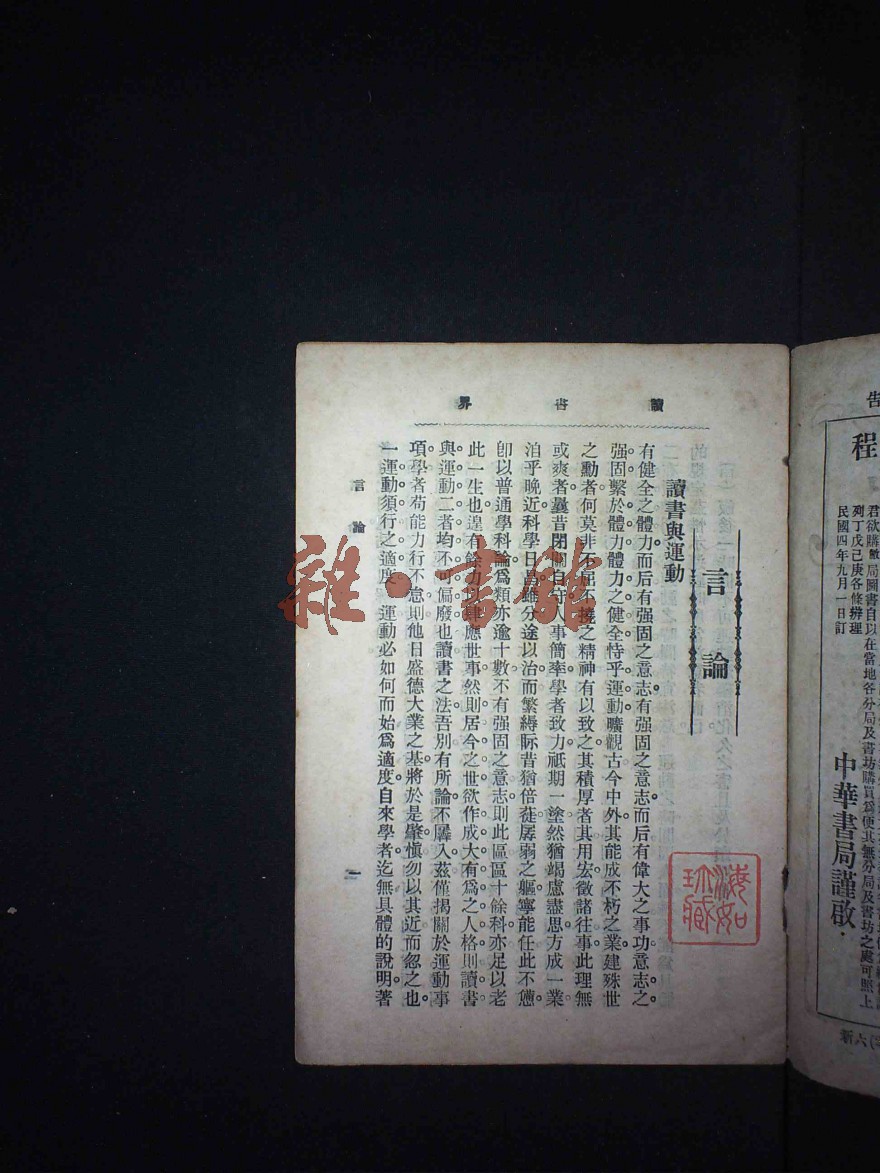 讀書界
言論
讀書與運動
有健全之體力而后有强固之意志有强固之意志而后有偉大之事功意志之
强固繫於體力體力之健全恃乎運動曠觀古今中外其能成不朽之業建殊世
之勳者何莫非不屈不撓之精神有以致之其積厚者其用宏徵諸往事此理無
或爽者曩昔閉關自守人事簡率學者致力祇期一塗然猶竭慮盡思方成一業
洎乎晚近科學日昌雖分途以治而繁縟际昔猶倍蓰孱弱之軀寧能任此不憊
卽以普通學科論爲類亦逾十數不有强固之意志則此區區十餘科亦足以老
此一生也遑有餘力以肆應世事然則居今之世欲作成大有爲之人格則讀書
與運動二者均不可偏廢也讀書之法吾別有所論不羼入茲僅揭關於運動事
項學者苟能力行不怠則他日盛德大業之基將於是肇愼勿以其近而忽之也
一運動須行之適度 運動必如何而始爲適度自來學者迄無具體的說明著
言論
一
雜·書館
海如
珍藏
告
程
君欲購敝局圖書自以在當地各分局及書坊購買爲便其無分局及書坊之處可照上
列丁戊己庚各條辦理
民國四年九月一日訂
中華書局謹啟
六新